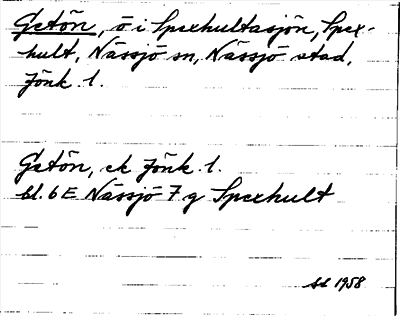 Getön, ö i Spexhultasjön, Spex-
hult, Nässjö sn, Nässjö stad,
Jönk. l.
Getön, ek Jönk. l.
bl. 6E Nässjö 7 g Spexhult
1958